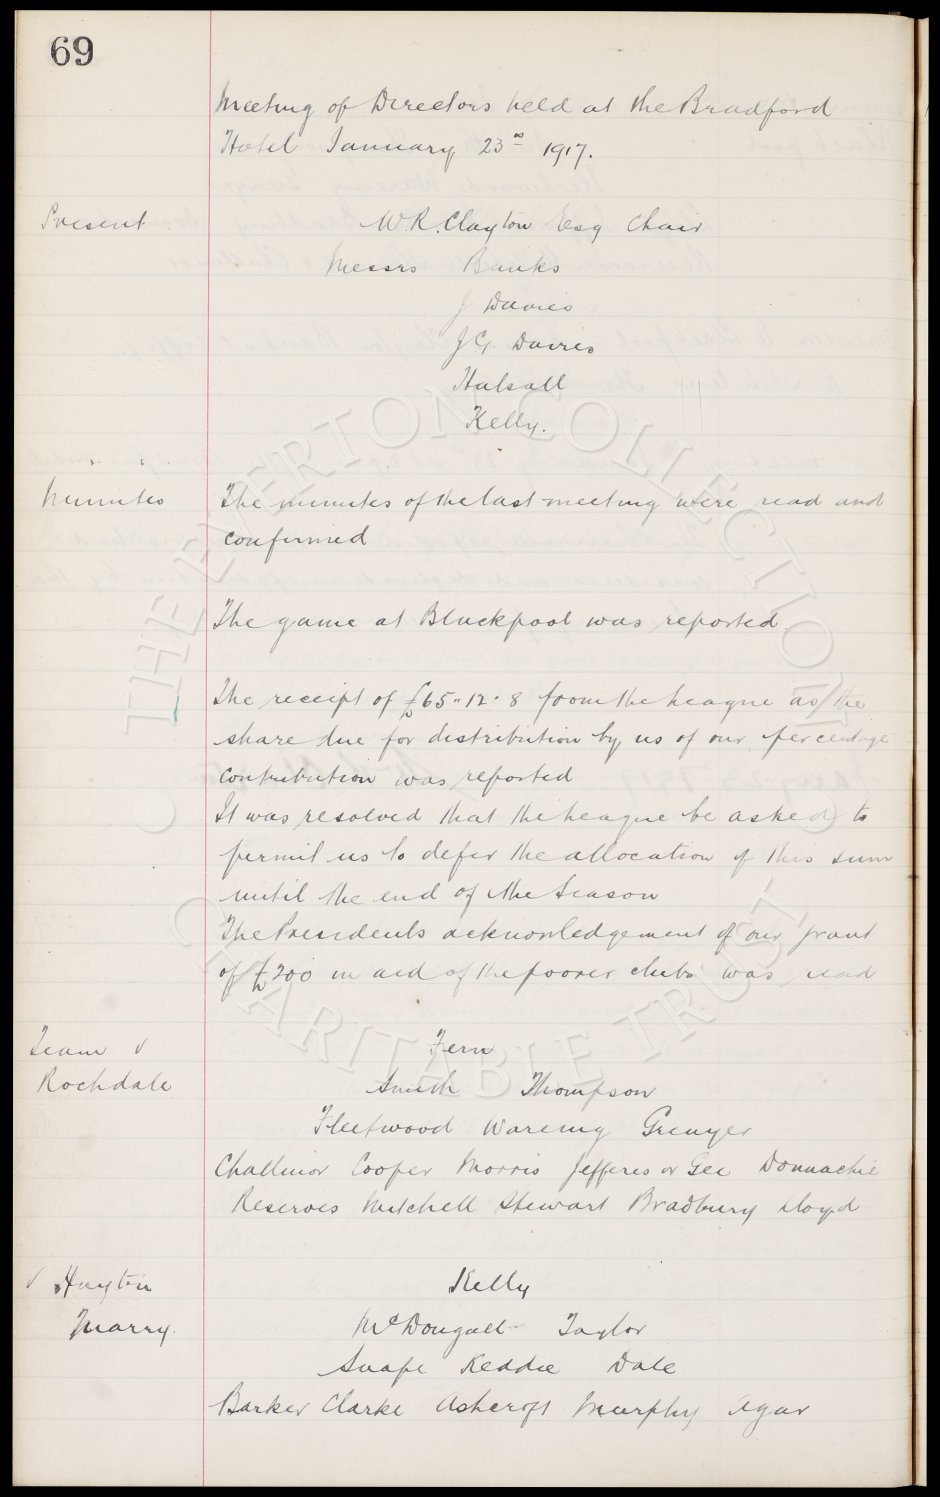 69
Meeting of Directors held at the Bradford
Hotel January 23rd 1917.
Present W.R. Clayton Esq Chair
Messrs Banks
J Davies
J.G. Davies
Halsall
Kelly.
Minutes The minutes of the last meeting were read and
confirmed
The game at Blackpool was reported
The receipt of £65"12"8 from the League as the
share due for distribution by us of our percentage
contribution was reported
It was resolved that the League be asked to
permit us to defer the allocation of this sum
until the end of the Season
The Presidents acknowledgement of our grant
of £200 in aid of the poorer clubs was read
Team v Fern
Rochdale Smith Thompson
Fleetwood Wareing Grenyer
Challinor Cooper Morris Jefferis or Gee Donnachie
Reserves Mitchell Stewart Bradbury Lloyd
v Huyton Kelly
Quarry. McDougall Taylor
Snape Keddie Dale
Barker Clarke Ashcroft Murphy Agar
THE EVERTON COLLECTION
CHARITABLE TRUST